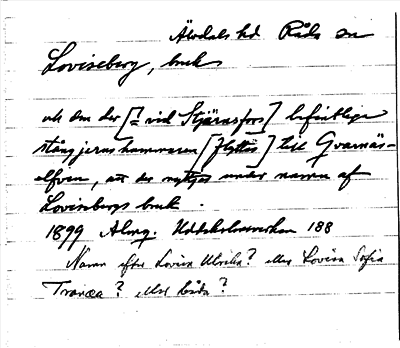 Älvdals hd Råda sn
Loviseberg, bruk
ok den der [= vid Stjärnsfors] befintliga
stångjernshammaren [flyttas] till Qvarnäs-
elfven, att der nyttjas under namn af
Lovisebergs bruk.
1899 Almq. Hdtskolleverken 188
Namn efter Lovisa Ulrika? eller Lovisa Sofia
Tranæa? eller båda?